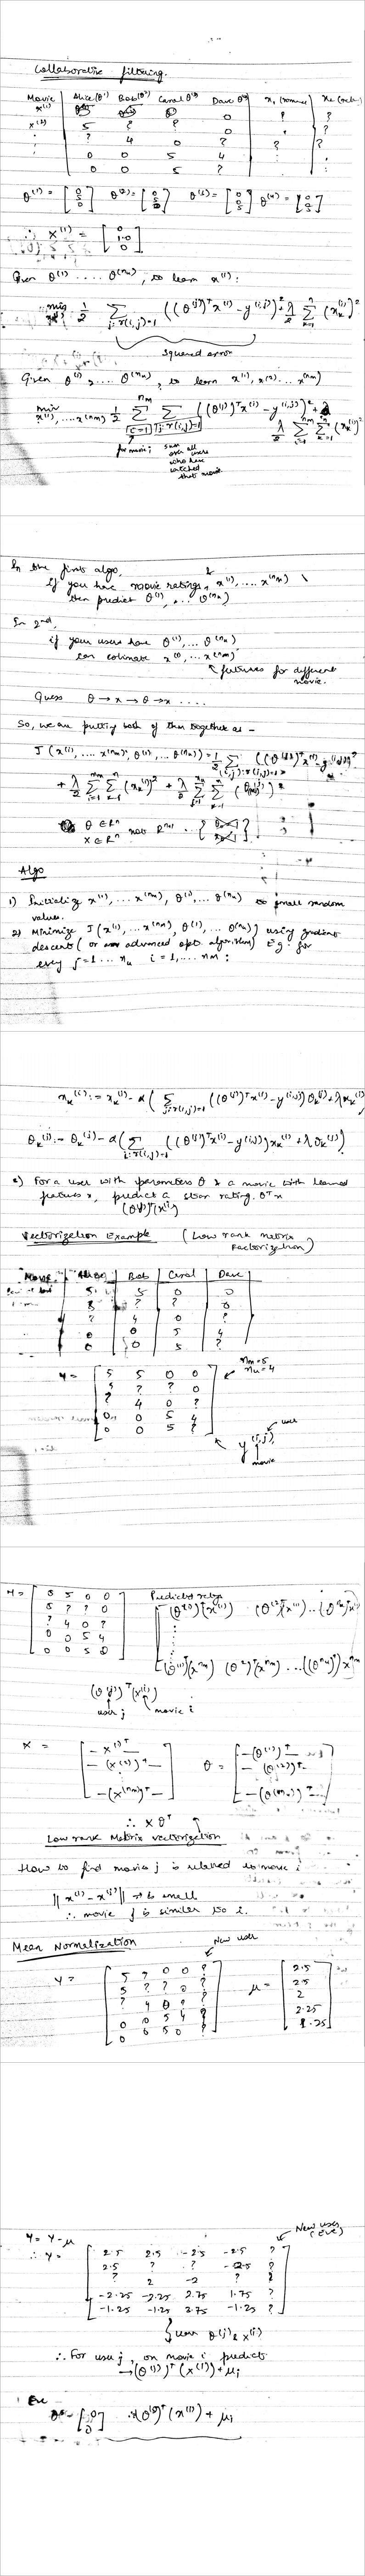 Collaborative filtering.
Movie Alice(θ¹) Bob(θ²) Carol(θ³) Dave(θ⁴) x₁ (romance) x₂
x⁽¹⁾ 0 ? ?
x⁽²⁾ 5 ? ? 0 ? ?
? 4 0 ? ? ?
0 0 5 4
0 0 5 ?
θ⁽¹⁾ = [0 5 0] θ⁽²⁾ = [0 5 0] θ⁽³⁾ = [0 0 5] θ⁽⁴⁾ = [0 0 5]
∴ x⁽¹⁾ = [0 1.0 0]
Given θ⁽¹⁾ .... θ⁽ⁿᵤ⁾, to learn x⁽ⁱ⁾:
min x⁽ⁱ⁾ 1/2 Σ j:r(i,j)=1 ((θ⁽ʲ⁾)ᵀx⁽ⁱ⁾ - y⁽ⁱ,ʲ⁾)² + λ/2 Σ k=1 n (xₖ⁽ⁱ⁾)²
squared error
Given θ⁽¹⁾, .... θ⁽ⁿᵤ⁾, to learn x⁽¹⁾, x⁽²⁾ ... x⁽ⁿₘ⁾
min x⁽¹⁾, .... x⁽ⁿₘ⁾ 1/2 Σ i=1 nₘ Σ j:r(i,j)=1 ((θ⁽ʲ⁾)ᵀx⁽ⁱ⁾ - y⁽ⁱ,ʲ⁾)² +
λ/2 Σ i=1 nₘ Σ k=1 n (xₖ⁽ⁱ⁾)²
for movie i sum over all users who have watched that movie
In the first algo,
if you have movie ratings, & x⁽¹⁾, .... x⁽ⁿₘ⁾
then predict θ⁽¹⁾, ... θ⁽ⁿᵤ⁾
In 2nd,
if your users have θ⁽¹⁾, ... θ⁽ⁿᵤ⁾
can estimate x⁽¹⁾, ... x⁽ⁿₘ⁾
features for different movie.
Guess θ → x → θ → x ....
So, we are putting both of them together as -
J (x⁽¹⁾, .... x⁽ⁿₘ⁾, θ⁽¹⁾, ... θ⁽ⁿᵤ⁾) = 1/2 Σ (i,j):r(i,j)=1 ((θ⁽ʲ⁾)ᵀx⁽ⁱ⁾ - y⁽ⁱ,ʲ⁾)²
+ λ/2 Σ i=1 nₘ Σ k=1 n (xₖ⁽ⁱ⁾)² + λ/2 Σ j=1 nᵤ Σ k=1 n (θₖ⁽ʲ⁾)²
θ ∈ Rⁿ
x ∈ Rⁿ not Rⁿ⁺¹ ..
Algo
1) Initialize x⁽¹⁾, ... x⁽ⁿₘ⁾, θ⁽¹⁾, ... θ⁽ⁿᵤ⁾ to small random
values.
2) Minimize J(x⁽¹⁾, ... x⁽ⁿₘ⁾, θ⁽¹⁾, ... θ⁽ⁿᵤ⁾) using gradient
descent (or advanced opt. algorithm) Eg. for
every j = 1 ... nᵤ i = 1, .... nₘ :
xₖ⁽ⁱ⁾ := xₖ⁽ⁱ⁾ - α ( Σ j:r(i,j)=1 ((θ⁽ʲ⁾)ᵀx⁽ⁱ⁾ - y⁽ⁱ,ʲ⁾) θₖ⁽ʲ⁾ + λxₖ⁽ⁱ⁾)
θₖ⁽ʲ⁾ := θₖ⁽ʲ⁾ - α( Σ i:r(i,j)=1 ((θ⁽ʲ⁾)ᵀx⁽ⁱ⁾ - y⁽ⁱ,ʲ⁾) xₖ⁽ⁱ⁾ + λθₖ⁽ʲ⁾)
For a user with parameters θ & a movie with learned
features x, predict a star rating. θᵀx
(θ⁽ʲ⁾)ᵀ(x⁽ⁱ⁾)
Vectorization Example (Low rank matrix
Factorization)
Movie Alice Bob Carol Dave
5 5 0 0
5 ? ? 0
? 4 0 ?
0 0 5 4
0 0 5 ?
nₘ=5
nᵤ=4
Y = [5 5 0 0
5 ? ? 0
? 4 0 ?
0 0 5 4
0 0 5 ?]
y⁽ⁱ,ʲ⁾ user
movie
Y = [5 5 0 0
5 ? ? 0
? 4 0 ?
0 0 5 4
0 0 5 0]
Predicted
[(θ⁽¹⁾)ᵀ(x⁽¹⁾) (θ⁽²⁾)ᵀ(x⁽¹⁾) ...
(θ⁽¹⁾)ᵀ(xⁿₘ) (θ²)ᵀ(xⁿₘ) .... ((θⁿᵤ)ᵀ)xⁿₘ]
(θ⁽ʲ⁾)ᵀ(x⁽ⁱ⁾)
user j movie i
X = [— x⁽¹⁾ᵀ —
— (x⁽²⁾)ᵀ —
— (x⁽ⁿₘ⁾)ᵀ —]
θ = [— (θ⁽¹⁾)ᵀ —
— (θ⁽²⁾)ᵀ —
— (θ⁽ⁿᵤ⁾)ᵀ —]
∴ Xθᵀ
Low rank Matrix vectorization
How to find movies j is related to movie i
||x⁽ⁱ⁾ - x⁽ʲ⁾|| → is small
∴ movie j is similar to i.
Mean Normalization
New user
Y = [5 ? 0 0 ?
5 ? ? 0 ?
? 4 0 ? ?
0 0 5 4 ?
0 0 5 0 ?]
μ = [2.5
2.5
2
2.25
1.25]
Y = Y - μ
New user (Eve)
∴ Y = [2.5 2.5 -2.5 -2.5 ?
2.5 ? ? -2.5 ?
? 2 -2 ? ?
-2.25 -2.25 2.75 1.75 ?
-1.25 -1.25 3.75 -1.25 ?]
learn θ⁽ʲ⁾ & x⁽ⁱ⁾
∴ For user j, on movie i predict
→ (θ⁽ʲ⁾)ᵀ(x⁽ⁱ⁾) + μᵢ
Eve -
θ = [0 0] ∴ (θ⁽⁵⁾)ᵀ(x⁽ⁱ⁾) + μᵢ